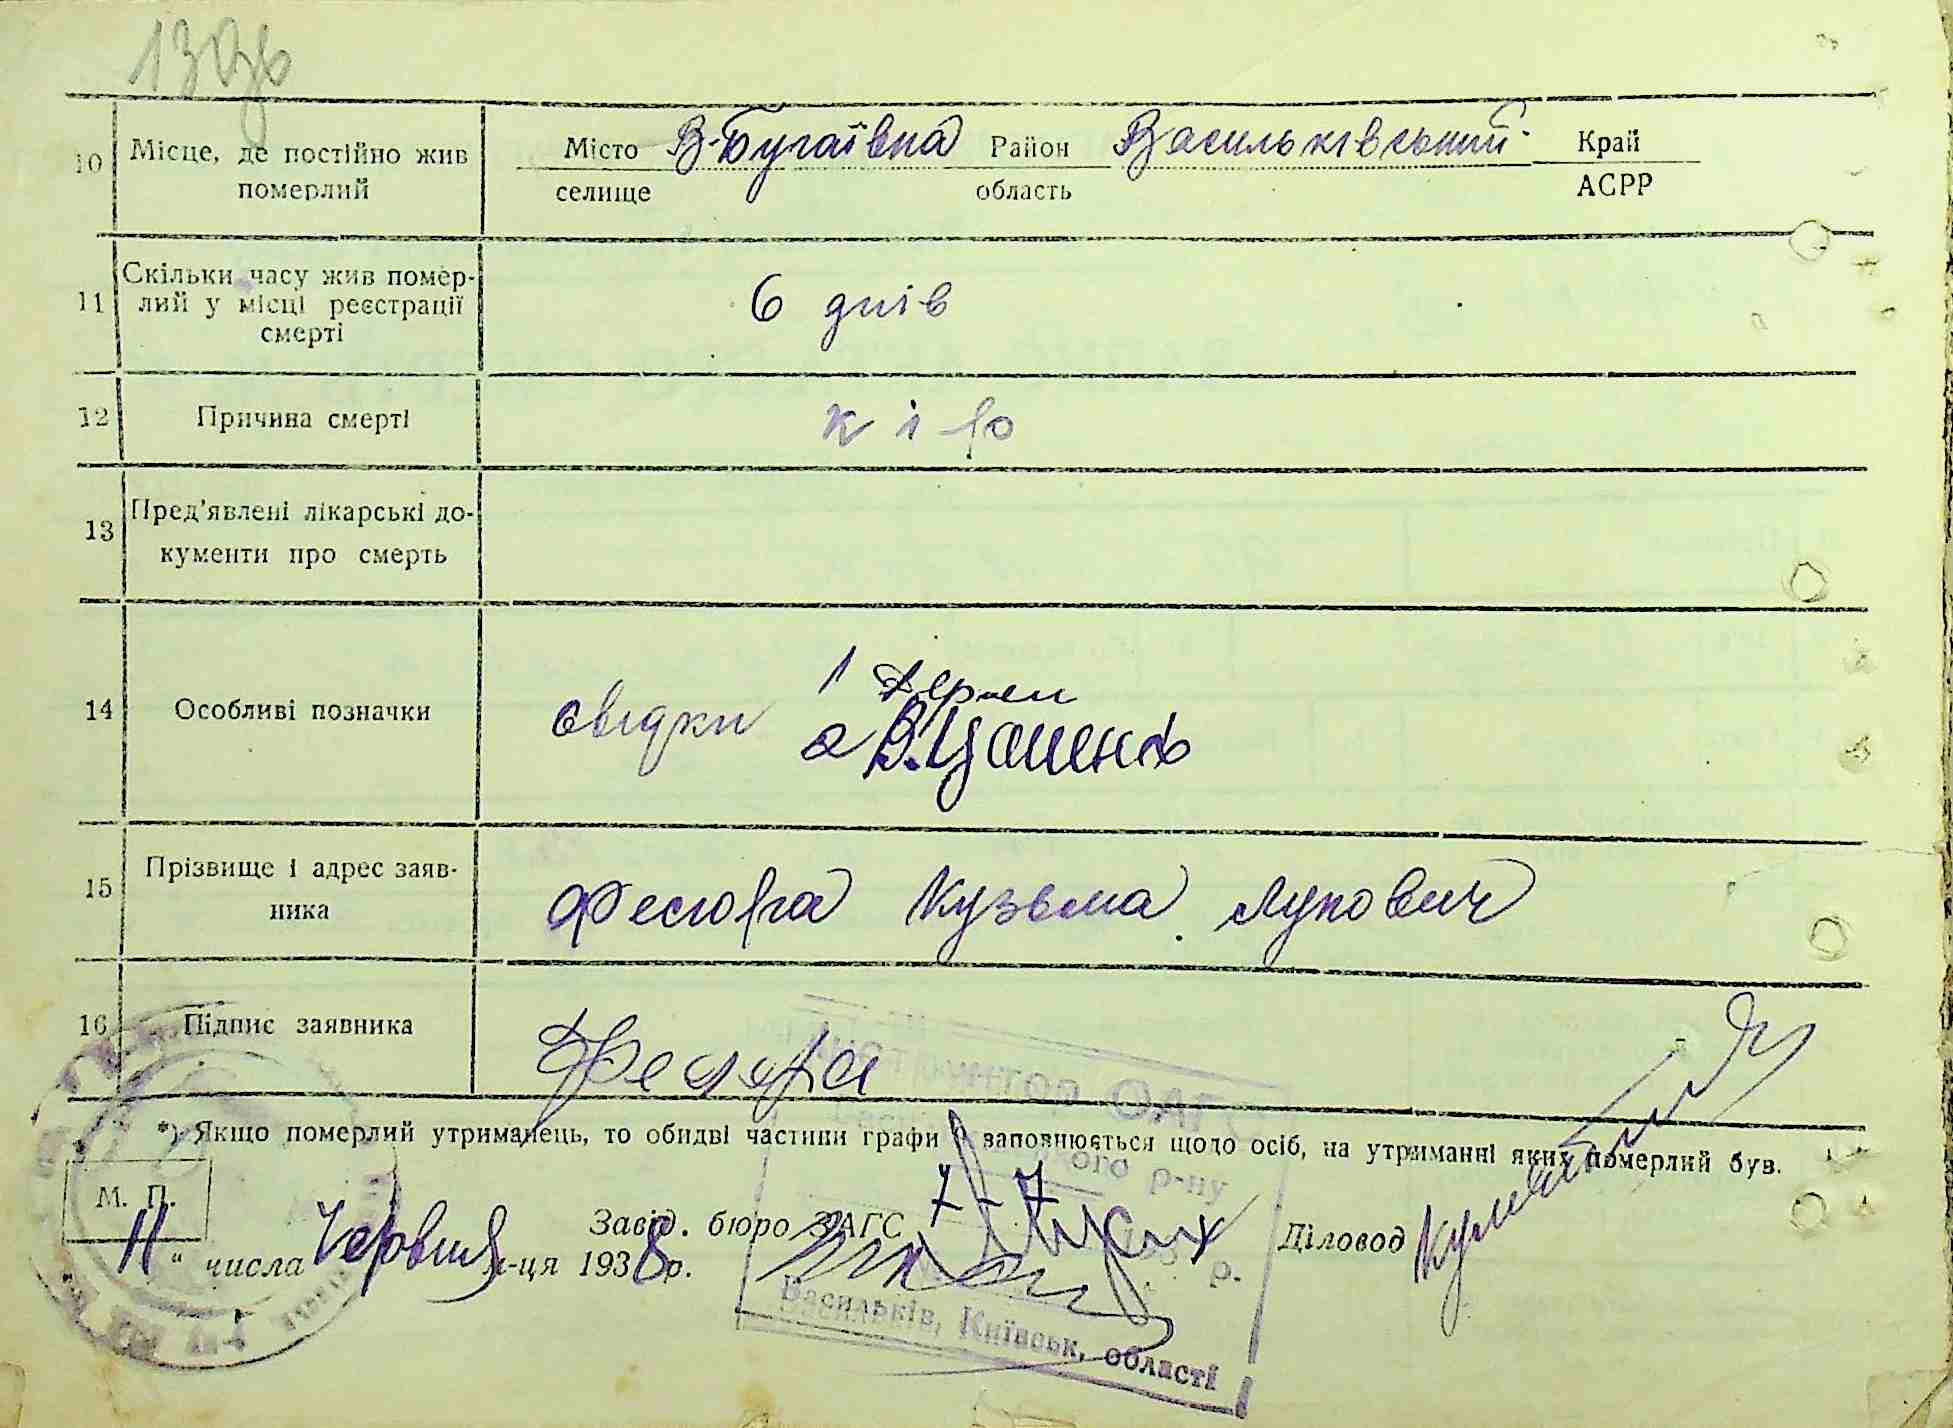 10 Місце, де постійно жив померлий
Місто В-Бугаївка Район Васильківський Край
селище область АСРР
11 Скільки часу жив помер-
лий у місці реєстрації
смерті
6 днів
12 Причина смерті
кір
13 Пред'явлені лікарські до-
кументи про смерть
14 Особливі позначки
свідки 1
2 В.Цаценко
15 Прізвище і адрес заяв-
ника
Фесюра Кузьма Лукович
16 Підпис заявника
Фесюра
*) Якщо померлий утриманець, то обидві частини графи заповнюється щодо осіб, на утриманні яких померлий був.
М. П.
Завід. бюро ЗАГС
Діловод
11 " числа Червня м-ця 1938 р.
ОАГС
ого р-ну
р.
Васильків, Київськ. області